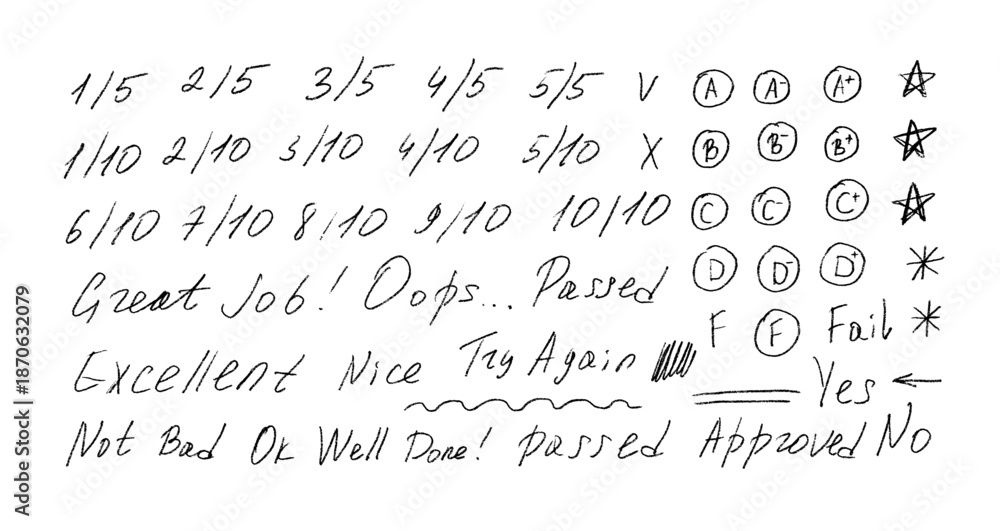 1/5 2/5 3/5 4/5 5/5 V A A- A+
1/10 2/10 3/10 4/10 5/10 X B B- B+
6/10 7/10 8/10 9/10 10/10 C C- C+
D D- D+
Great Job! Oops... Passed
F F Fail
Excellent Nice Try Again
Yes
Not Bad Ok Well Done! passed Approved No
Adobe Stock | #1870632079